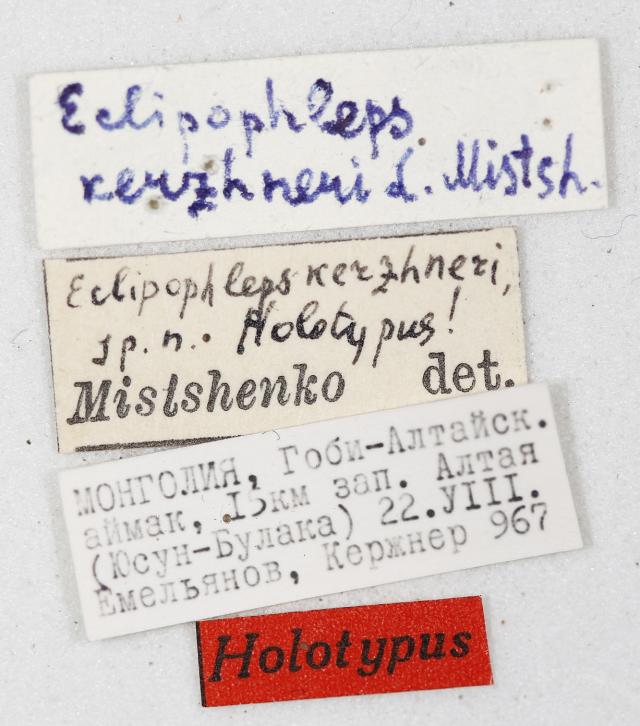 Eclipophleps
kerzhneri L. Mistsh.
Eclipophleps kerzhneri,
sp. n. Holotypus!
Mistshenko det.
МОНГОЛИЯ, Гоби-Алтайск.
аймак, 15км зап. Алтая
(Юсун-Булака) 22.УIII.
Емельянов, Кержнер 967
Holotypus